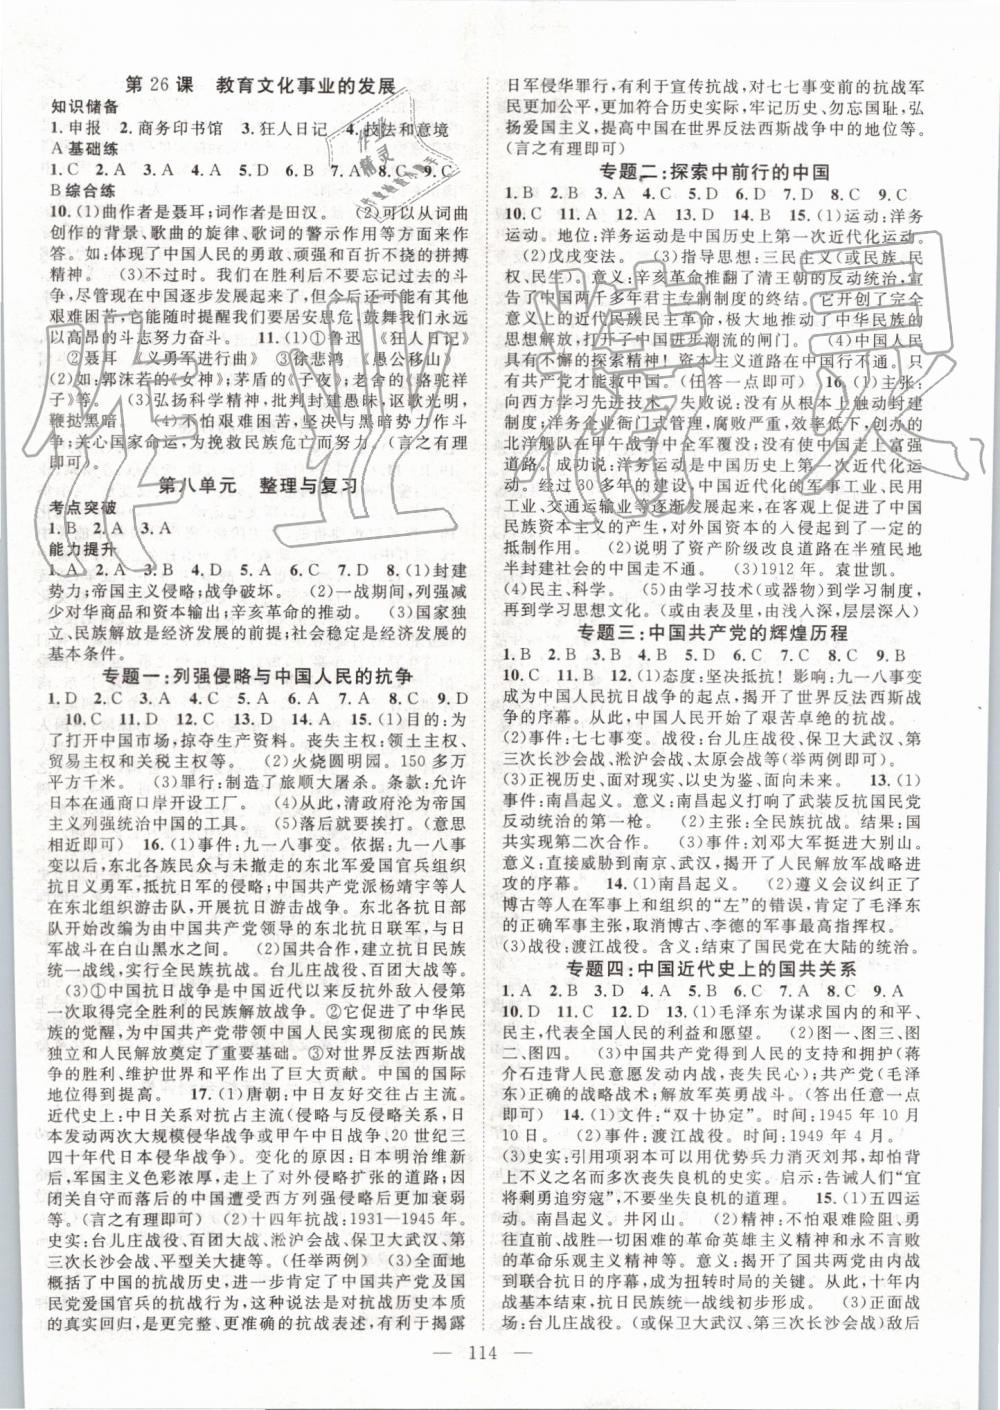 第 26 课　教育文化事业的发展
知识储备
1. 申报　2. 商务印书馆　3. 狂人日记　4. 技法和意境
A 基础练
1. C　2. A　3. D　4. A　5. D　6. B　7. D　8. C　9. C
B 综合练
10. (1)曲作者是聂耳;词作者是田汉。　(2)可以从词曲
创作的背景、歌曲的旋律、歌词的警示作用等方面来作
答。如:体现了中国人民的勇敢、顽强和百折不挠的拼搏
精神。　(3)不过时。我们在胜利后不要忘记过去的斗
争,尽管现在中国逐步发展起来了,但今后可能还会经历
艰难困苦;它能随时提醒我们要居安思危,鼓舞我们永远
以高昂的斗志努力奋斗。　11. (1)①鲁迅　《狂人日记》
②聂耳　《义勇军进行曲》　③徐悲鸿　《愚公移山》
(2)如:郭沫若的《女神》;茅盾的《子夜》;老舍的《骆驼祥
子》等。　(3)弘扬科学精神,批判封建愚昧,讴歌光明,
鞭挞黑暗　(4)不怕艰难困苦,坚决与黑暗势力作斗
争;关心国家命运,为挽救民族危亡而努力。(言之有理
即可)。
第八单元　整理与复习
考点突破
1. B　2. A　3. A
能力提升
1. A　2. A　3. B　4. D　5. A　6. A　7. B　8. (1)封建
势力;帝国主义侵略;战争破坏。　(2)一战期间,列强减
少对华商品和资本输出;辛亥革命的推动。　(3)国家独
立、民族解放是经济发展的前提;社会稳定是经济发展的
基本条件。
专题一:列强侵略与中国人民的抗争
1. D　2. A　3. D　4. C　5. D　6. C　7. B　8. C　9. D
10. C　11. D　12. C　13. D　14. A　15. (1)目的:为
了打开中国市场,掠夺生产资料。丧失主权:领土主权、
贸易主权和关税主权等。　(2)火烧圆明园。150 多万
平方千米。　(3)罪行:制造了旅顺大屠杀。条款:允许
日本在通商口岸开设工厂。　(4)从此,清政府沦为帝国
主义列强统治中国的工具。　(5)落后就要挨打。(意思
相近即可)　16. (1)事件:九一八事变。依据:九一八事
变以后,东北各族民众与未撤走的东北军爱国官兵组织
抗日义勇军,抵抗日军的侵略;中国共产党派杨靖宇等人
在东北组织游击队,开展抗日游击战争。东北各抗日部
队开始改编为由中国共产党领导的东北抗日联军,与日
军战斗在白山黑水之间。　(2)国共合作,建立抗日民族
统一战线,实行全民族抗战。台儿庄战役、百团大战等。
(3)①中国抗日战争是中国近代以来反抗外敌入侵第
一次取得完全胜利的民族解放战争。②它促进了中华民
族的觉醒,为中国共产党带领中国人民实现彻底的民族
独立和人民解放奠定了重要基础。③对世界反法西斯战
争的胜利、维护世界和平作出了巨大贡献。中国的国际
地位得到提高。　17. (1)唐朝:中日友好交往占主流。
近代史上:中日关系对抗占主流(侵略与反侵略关系或日
本发动两次大规模侵华战争或甲午中日战争、20 世纪三
四十年代日本侵华战争)。变化的原因:日本明治维新
后,军国主义色彩浓厚,走上了对外侵略扩张的道路,因
闭关自守而落后的中国遭受西方列强侵略后更加衰弱
等。(言之有理即可)　(2)十四年抗战:1931—1945 年。
史实:台儿庄战役、百团大战、淞沪会战、保卫大武汉、第
三次长沙会战、平型关大捷等。(任答两例即可)　(3)全面地
概括了中国的抗战历史,进一步肯定了中国共产党及国
民党爱国官兵的抗战行为,这种说法是对抗战历史本质
的真实回归,是更完整、更准确的抗战表述,有利于揭露
日军侵华罪行,有利于宣传抗战,对七七事变前的抗战军
民更加公平,更加符合历史实际,牢记历史、勿忘国耻,弘
扬爱国主义,提高中国在世界反法西斯战争中的地位等。
(言之有理即可)
专题二:探索中前行的中国
1. B　2. B　3. A　4. C　5. D　6. C　7. B　8. C　9. C
10. C　11. A　12. D　13. A　14. B　15. (1)运动:洋务
运动。地位:洋务运动是中国历史上第一次近代化运动。
(2)戊戌变法。　(3)指导思想:三民主义(或民族、民
权、民生)。意义:辛亥革命推翻了清王朝的反动统治,宣
告了中国两千多年君主专制制度的终结。它开创了完全
意义上的近代民族民主革命,极大地推动了中华民族的
思想解放,打开了中国进步潮流的闸门。　(4)中国人民
具有不懈的探索精神!资本主义道路在中国行不通。只
有共产党才能救中国。(任答一点即可)　16. (1)主张:
向西方学习先进技术。失败说:没有从根本上触动封建
制度;洋务企业衙门式管理,腐败严重,效率低下;创办的
北洋舰队在甲午战争中全军覆没;没有使中国走上富强
道路。成功说:洋务运动是中国历史上第一次近代化运
动。经过 30 多年的发展,中国近代化的军事工业、民用
工业、交通运输业等逐渐发展起来,在客观上促进了中国
民族资本主义的产生,对外国资本的入侵起到了一定的
抵制作用。　(2)说明了资产阶级改良道路在半殖民地
半封建社会的中国走不通。　(3)1912 年。袁世凯。
(4)民主、科学。　(5)由学习技术(或器物)到学习制度,
再到学习思想文化。(或由表及里,由浅入深,层层深入)
专题三:中国共产党的辉煌历程
1. B　2. B　3. C　4. D　5. B　6. C　7. B　8. C　9. C
10. B　11. B　12. (1)态度:坚决抵抗!影响:九一八事变
成为中国人民抗日战争的起点,揭开了世界反法西斯战
争的序幕。从此,中国人民开始了艰苦卓绝的抗战。
(2)事件:七七事变。战役:台儿庄战役、保卫大武汉、第三
次长沙会战、淞沪会战、太原会战等。(举两例即可)。
(3)正视历史、面对现实、以史为鉴、面向未来。　13. (1)
事件:南昌起义。意义:南昌起义打响了武装反抗国民党
反动统治的第一枪。　(2)主张:全民族抗战。结果:国
共实现第二次合作。　(3)事件:刘邓大军挺进大别山。
意义:直接威胁到南京、武汉,揭开了人民解放军战略进
攻的序幕。　14. (1)南昌起义。　(2)遵义会议纠正了
博古等人在军事上和组织上的“左”的错误,肯定了毛泽东
的正确军事主张,取消博古、李德的军事最高指挥权。
(3)战役:渡江战役。含义:结束了国民党在大陆的统治。
专题四:中国近代史上的国共关系
1. A　2. B　3. D　4. D　5. B　6. B　7. A　8. C　9. A
10. D　11. C　12. D　13. (1)毛泽东为谋求国内的和平、
民主,代表全国人民的利益和愿望。　(2)图一、图三、图
二、图四。　(3)中国共产党得到人民的支持和拥护(蒋
介石违背人民意愿发动内战,丧失民心);中共(毛泽
东)正确的战略战术;解放军英勇战斗。(答出任意一点
即可)　14. (1)文件:“双十协定”。时间:1945 年 10 月
10 日。　(2)事件:渡江战役。时间:1949 年 4 月。
(3)史实:引用项羽本可以用优势兵力消灭刘邦,却由于
种种原因而多次丧失良机的史实。启示:告诫人们“宜
将剩勇追穷寇”,不要坐失良机的道理。　15. (1)五四运
动。南昌起义。井冈山。　(2)精神:不怕艰难险阻、勇
往直前、战胜一切困难的革命英雄主义精神和不畏牺牲
的革命乐观主义精神等。意义:揭开了国共两党由内战
到联合抗日的序幕,成为扭转时局的关键。从此,十年内
战基本结束,抗日民族统一战线初步形成。　(3)正面战
场:台儿庄战役。(或保卫大武汉、第三次长沙会战)敌后
— 114 —
作业精灵